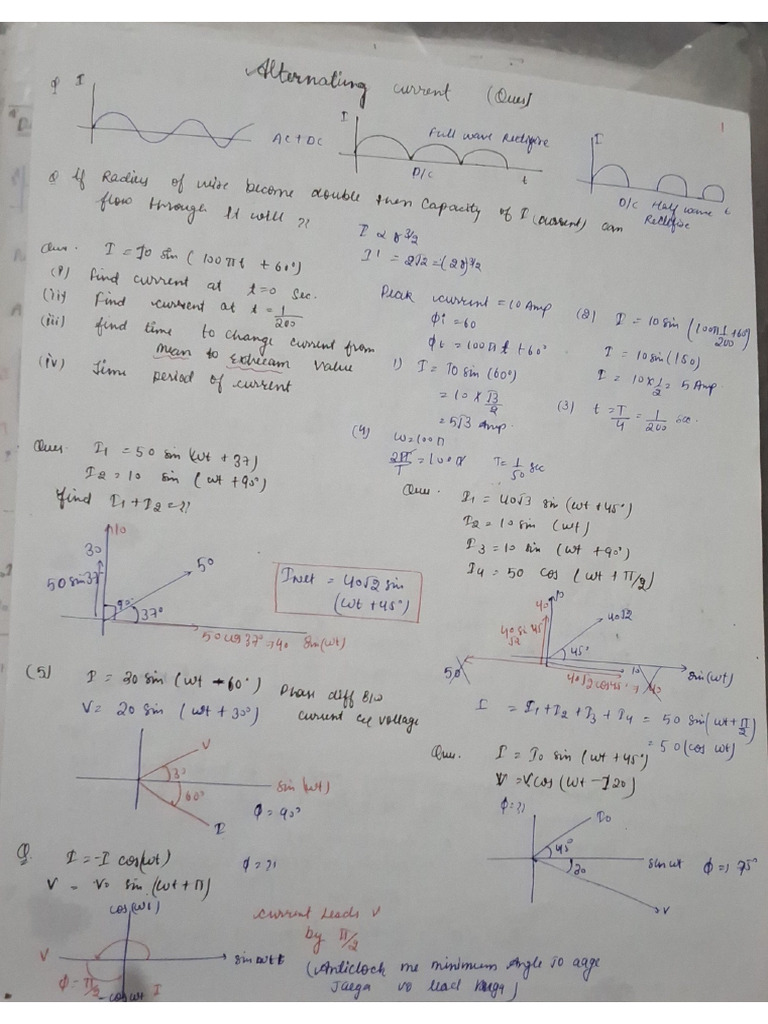 Alternating current (Ques)
1
Q I
AC + DC
I
Full wave Rectifire
D/C
t
I
D/C Half wave
Rectifire
t
Q If Radius of wire become double then Capacity of I (current) can
flow through it will ??
I α r^3/2
I' = 2√2 = (2r)^3/2
Ques. I = I0 sin (100πt + 60°)
(i) Find current at t=0 sec.
(ii) Find current at t = 1/200
(iii) find time to change current from
mean to extream value
(iv) Time period of current
Peak current = 10 Amp
ϕi = 60
ϕt = 100πt + 60°
1) I = 10 sin (60°)
= 10 × √3/2
= 5√3 Amp.
(2) I = 10 sin (100π 1/200 + 60)
I = 10 sin (150)
I = 10 × 1/2 = 5 Amp.
(3) t = T/4 = 1/200 sec.
(4) ω = 100π
2π/T = 100π T = 1/50 sec
Ques. I1 = 50 sin (ωt + 37)
I2 = 10 sin (ωt + 90°)
find I1 + I2 = ??
10
30
50 sin 37°
50
90°
37°
50 cos 37° = 40 sin(ωt)
Inet = 40√2 sin
(ωt + 45°)
Ques. I1 = 40√3 sin (ωt + 45°)
I2 = 10 sin (ωt)
I3 = 10 sin (ωt + 90°)
I4 = 50 cos (ωt + π/2)
10
40
40√2
45°
50
10
sin(ωt)
I = I1 + I2 + I3 + I4 = 50 sin (ωt + π/2)
= 50 (cos ωt)
(5) I = 30 sin (ωt - 60°)
V = 20 sin (ωt + 30°)
Phan diff B/w
current cu voltage
V
30
60°
sin (ωt)
I
ϕ = 90°
Ques. I = I0 sin (ωt + 45°)
V = V cos (ωt - 120)
ϕ = ??
I0
45°
30
sin ωt
ϕ = 75°
V
Q. I = -I cos(ωt)
V = V0 sin (ωt + π)
ϕ = ??
cos(ωt)
V
sin ωt
ϕ = π/2
-cos ωt I
current leads V
by π/2
(Anticlock me minimum Angle jo aage
Jaega vo lead karega)